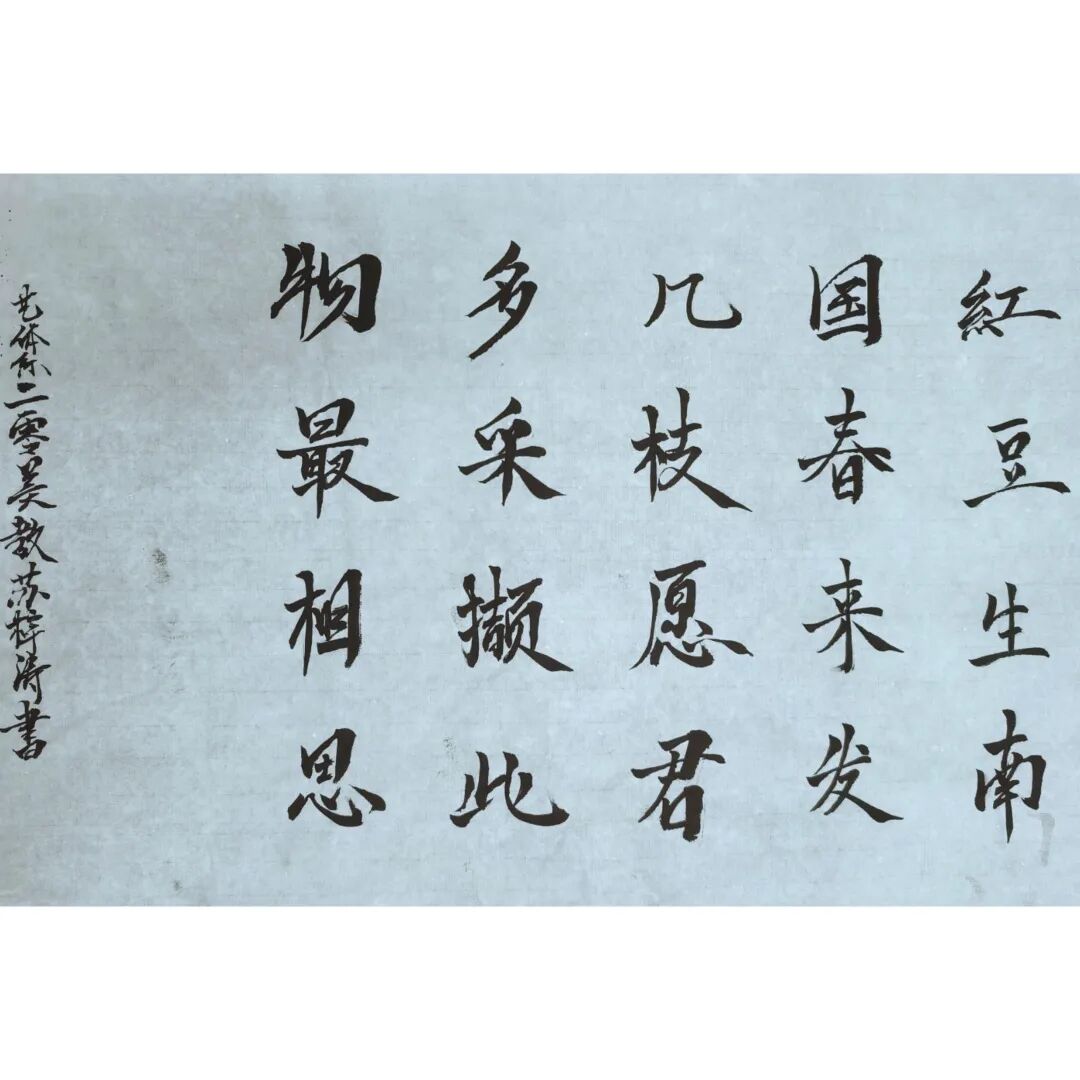 紅豆生南
国春来发
几枝愿君
多采撷此
物最相思
艺体系二零美教苏梓涛書